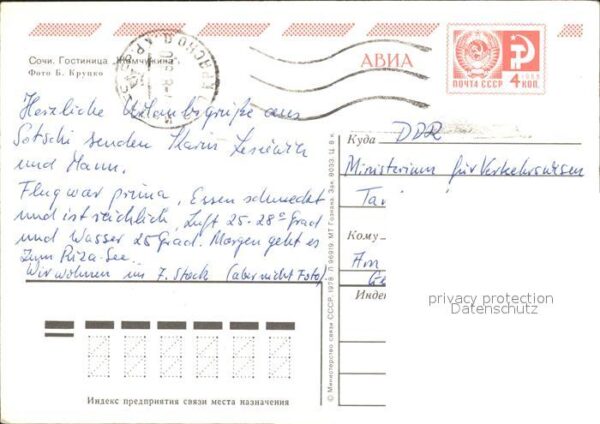 Сочи. Гостиница „Жемчужина"
Фото Б. Крупко
АВИА
ПОЧТА СССР 4 КОП.
Herzliche Urlaubsgrüße aus
Sotschi senden Karin
und Mann.
Flug war prima, Essen schmeckt
und ist reichlich, Luft 25-28° Grad
und Wasser 25 Grad. Morgen geht es
zum Riza-See.
Wir wohnen im 7. Stock (aber nicht Foto).
Куда DDR
Ministerium für Verkehrswesen
Tari
Кому
Am
Индекс
privacy protection
Datenschutz
Индекс предприятия связи места назначения
© Министерство связи СССР. 1978. Л 96919. МТ Гознака. Зак. 9033. Ц. 8 к.